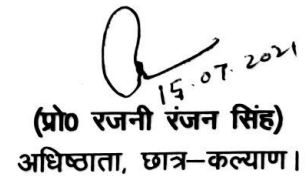 15.07.2021
(प्रो० रजनी रंजन सिंह)
अधिष्ठाता, छात्र–कल्याण।